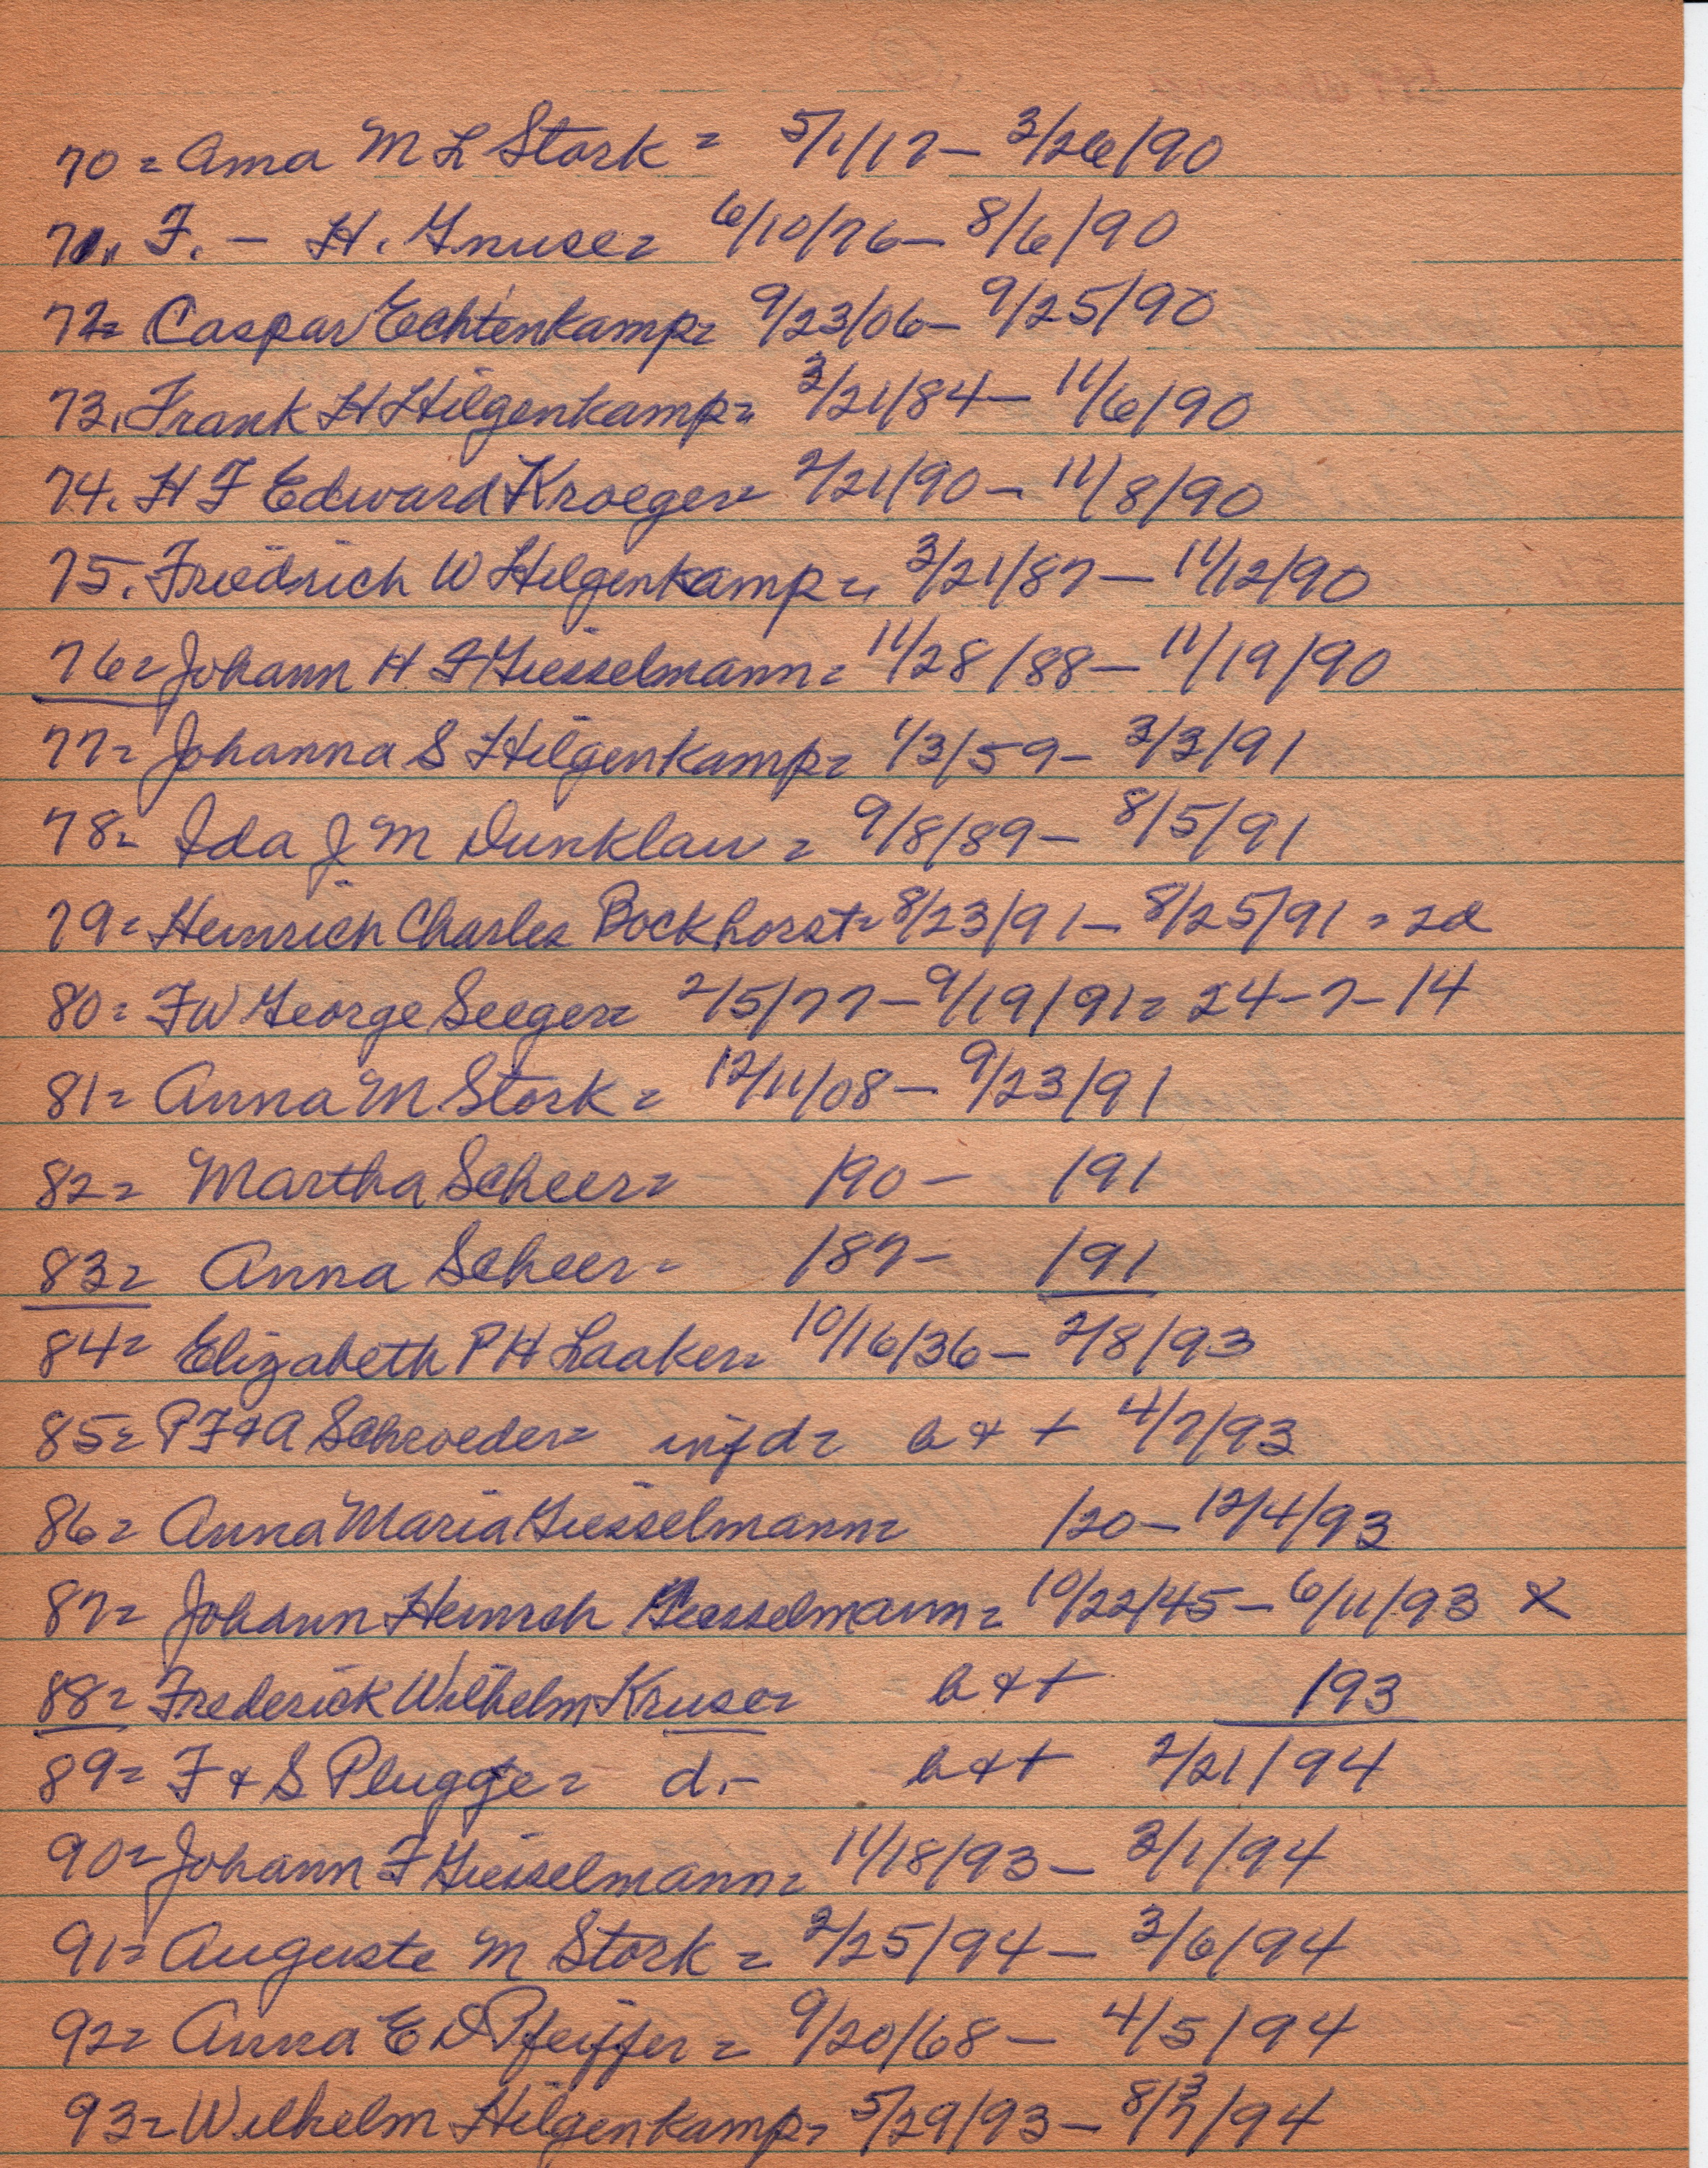 70 = Anna M L Stork = 5/1/17 - 3/26/90
71. F. - H. Gnuse = 6/10/76 - 8/6/90
72 = Caspar Echtenkamp = 9/23/06 - 9/25/90
73. Frank H Hilgenkamp = 3/21/84 - 11/6/90
74. H F Edward Kroeger = 2/21/90 - 11/8/90
75. Friedrich W Hilgenkamp = 3/21/87 - 11/12/90
76 = Johann H F Giesselmann = 11/28/88 - 11/19/90
77 = Johanna S Hilgenkamp = 1/3/59 - 3/3/91
78 = Ida J M Dunklau = 9/8/89 - 8/5/91
79 = Heinrich Charles Bockhorst = 8/23/91 - 8/25/91 = 2d
80 = F W George Seeger = 2/5/77 - 9/19/91 = 24-7-14
81 = Anna M Stork = 12/11/08 - 9/23/91
82 = Martha Scheer = /90 - /91
83 = Anna Scheer - /87 - /91
84 = Elizabeth P H Laaker = 10/16/36 - 2/8/93
85 = P F & A Schroeder = inf d = b & + 4/7/93
86 = Anna Maria Giesselmann = /20 - 12/4/93
87 = Johann Heinrich Giesselmann = 10/22/45 - 6/11/93 X
88 = Frederick Wilhelm Kruse = b & + /93
89 = F & S Plugge = d. - b & + 2/21/94
90 = Johann F Giesselmann = 11/18/93 - 3/1/94
91 = Auguste M Stork = 2/25/94 - 3/6/94
92 = Anna E D Pfeiffer = 9/20/68 - 4/5/94
93 = Wilhelm Hilgenkamp = 5/29/93 - 8/3/94